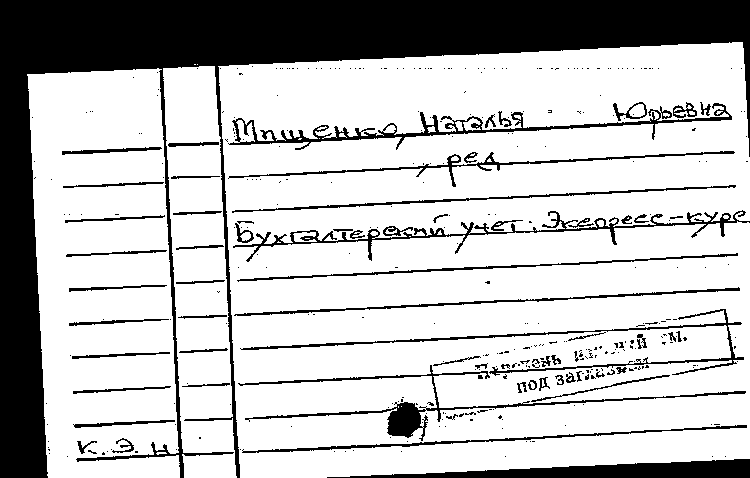 Мищенко, Наталья Юрьевна
, ред.
Бухгалтерский учет: Экспресс-курс
Перечень изданий см.
под заглавием
К. Э. Н